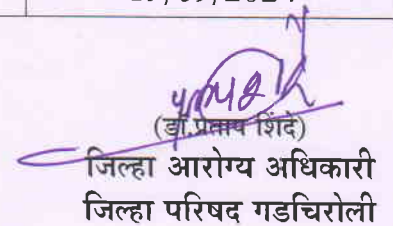 (डॉ.प्रताप शिंदे)
जिल्हा आरोग्य अधिकारी
जिल्हा परिषद गडचिरोली